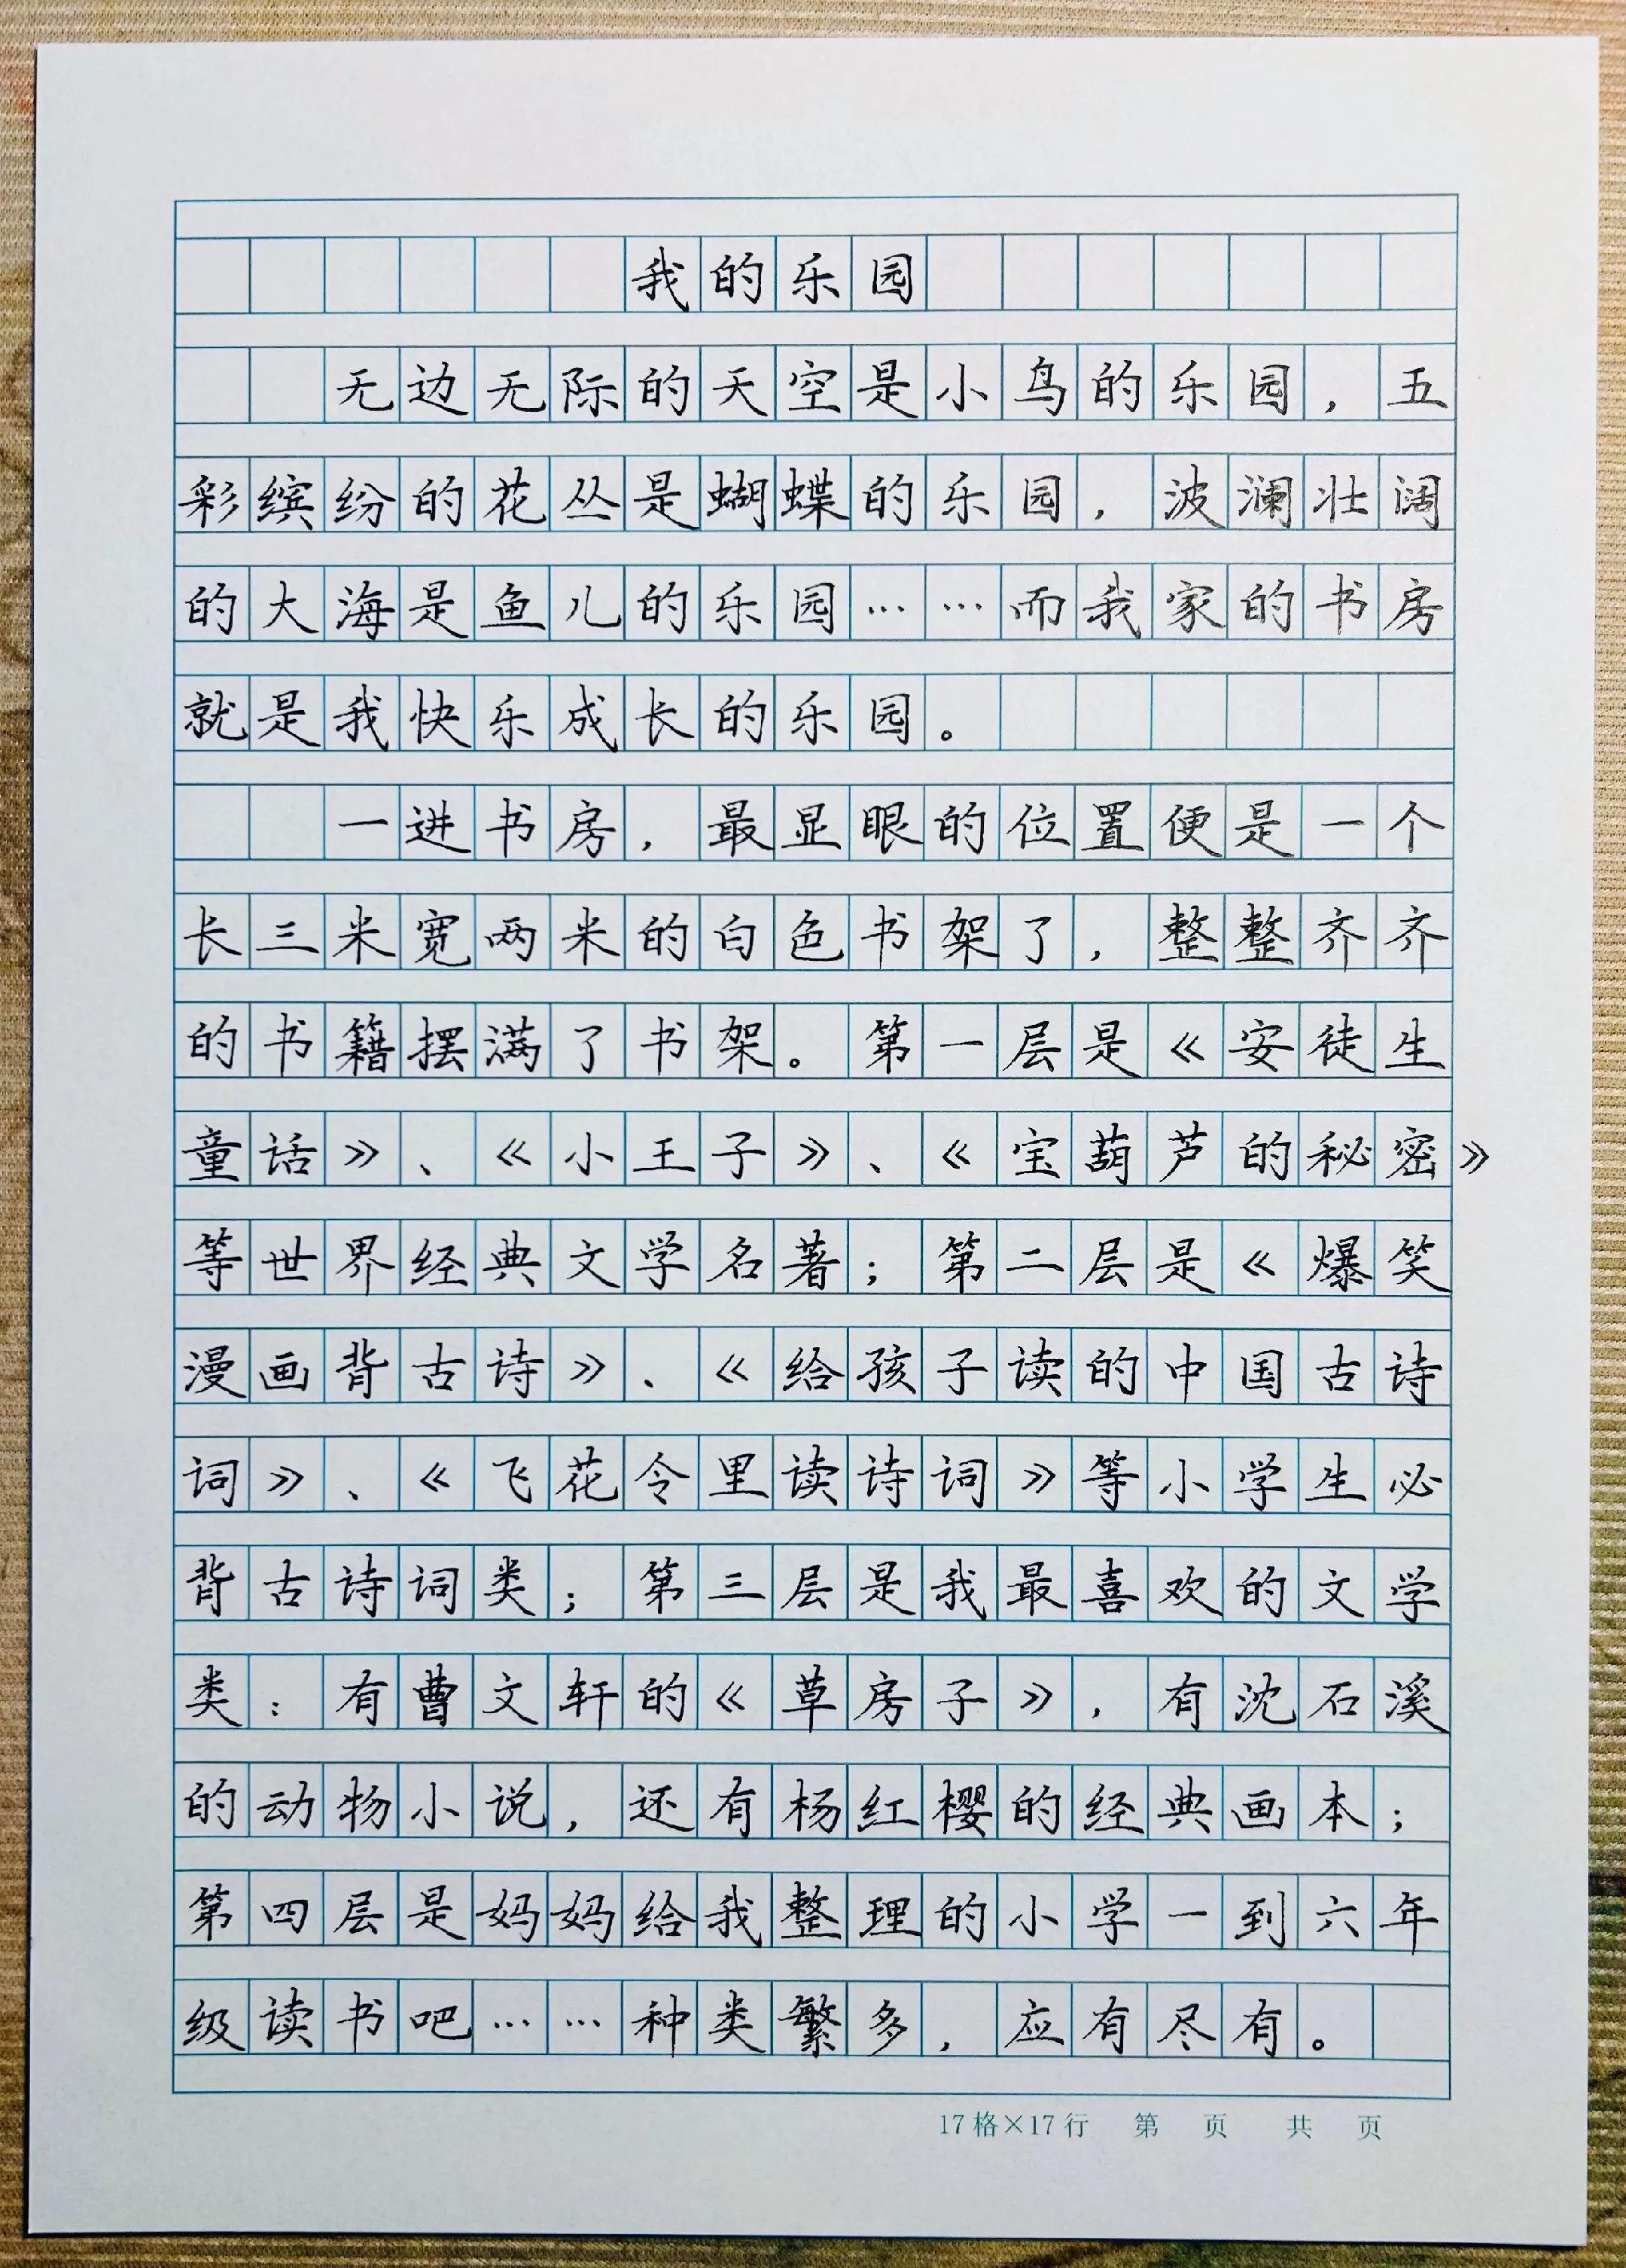 我的乐园
无边无际的天空是小鸟的乐园，五
彩缤纷的花丛是蝴蝶的乐园，波澜壮阔
的大海是鱼儿的乐园……而我家的书房
就是我快乐成长的乐园。
一进书房，最显眼的位置便是一个
长三米宽两米的白色书架了，整整齐齐
的书籍摆满了书架。第一层是《安徒生
童话》、《小王子》、《宝葫芦的秘密》
等世界经典文学名著；第二层是《爆笑
漫画背古诗》、《给孩子读的中国古诗
词》、《飞花令里读诗词》等小学生必
背古诗词类；第三层是我最喜欢的文学
类：有曹文轩的《草房子》，有沈石溪
的动物小说，还有杨红樱的经典画本；
第四层是妈妈给我整理的小学一到六年
级读书吧……种类繁多，应有尽有。
17格×17行 第 页 共 页